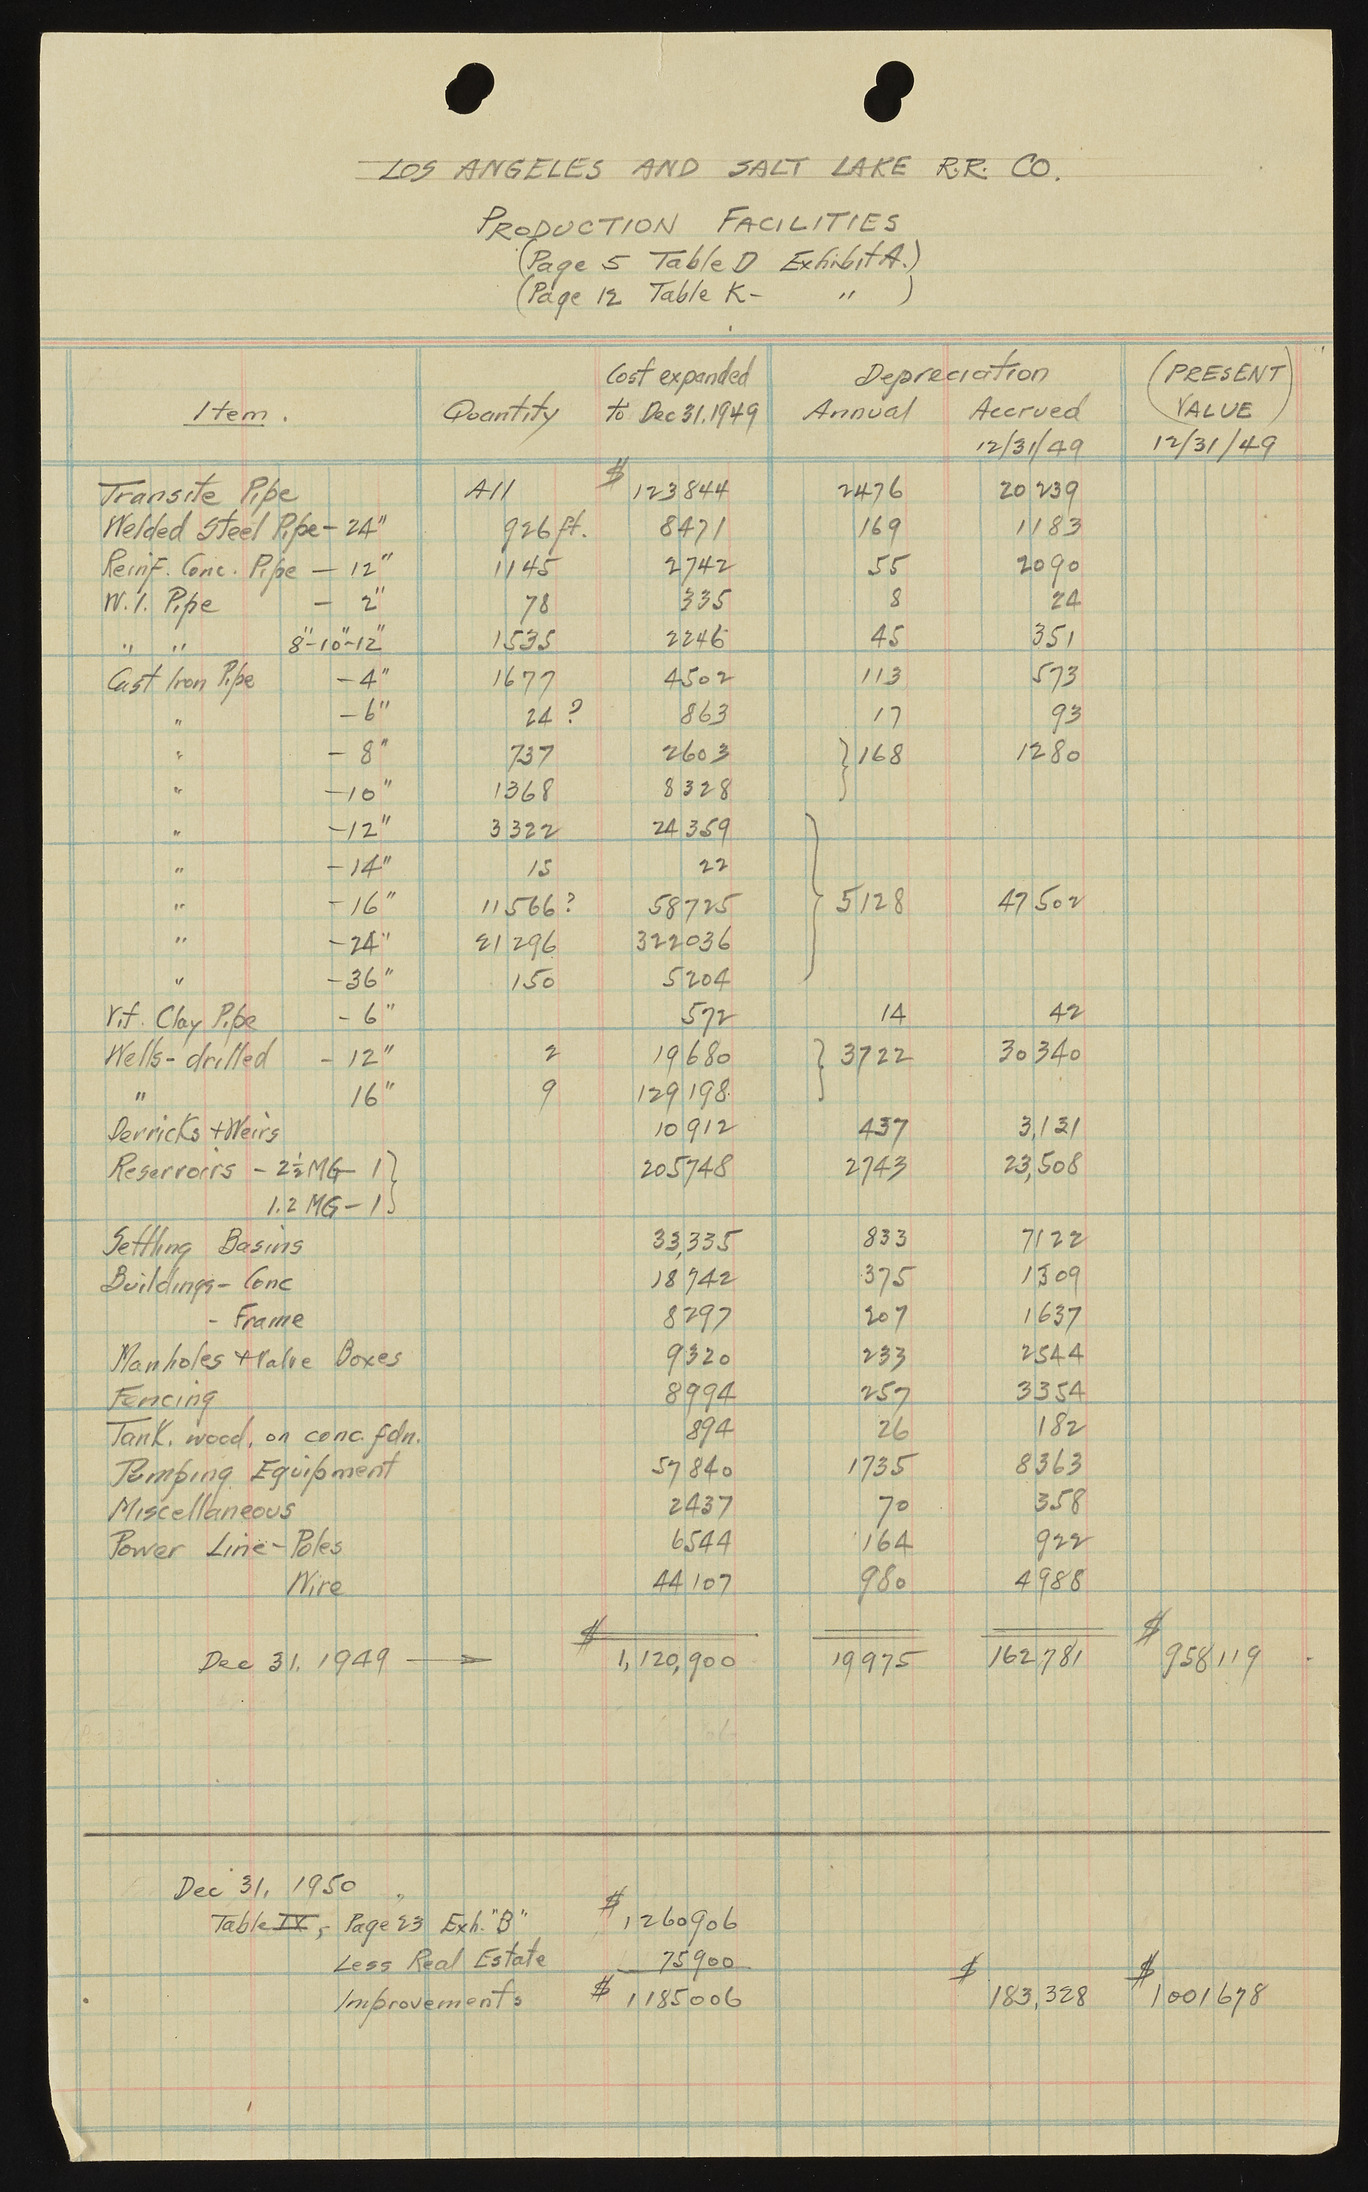 LOS ANGELES AND SALT LAKE R.R. CO.
PRODUCTION FACILITIES
(Page 5 Table D Exhibit A.)
(Page 12 Table K- " )
Item. Quantity Cost expanded to Dec 31, 1949 Depreciation Annual Accrued 12/31/49 (PRESENT VALUE) 12/31/49
Transite Pipe All $ 123844 2476 20239
Welded Steel Pipe - 24" 926 ft. 8471 169 1183
Reinf. Conc. Pipe - 12" 1145 2742 55 2090
W.I. Pipe - 2" 78 335 8 24
" " 8"-10"-12" 1535 2246 45 351
Cast Iron Pipe - 4" 1677 4502 113 573
" - 6" 24 ? 863 17 93
" - 8" 737 2603 } 168 1280
" - 10" 1368 8328
" - 12" 3322 24359
" - 14" 15 22
" - 16" 11566 ? 58725 } 5128 47502
" - 24" 21296 322036
" - 36" 150 5204
Vit. Clay Pipe - 6" 572 14 42
Wells - drilled - 12" 2 19680 } 3722 30340
" 16" 9 129198
Derricks + Weirs 10912 437 3,131
Reservoirs - 2½ MG - 1 } 205748 2743 23,508
1.2 MG - 1 }
Settling Basins 33,335 833 7122
Buildings - Conc 18742 375 1309
- Frame 8297 207 1637
Manholes + Valve Boxes 9320 233 2544
Fencing 8994 257 3354
Tank, wood, on conc. fdn. 894 26 182
Pumping Equipment 57840 1735 8363
Miscellaneous 2437 70 358
Power Line - Poles 6544 164 922
Wire 44107 980 4988
Dec 31, 1949 → $ 1,120,900 19975 162781 $ 958119
Dec 31, 1950
Table IX, Page 23 Exh. "B" $ 1260906
Less Real Estate 75900
Improvements $ 1185006 $ 183,328 $ 1001678